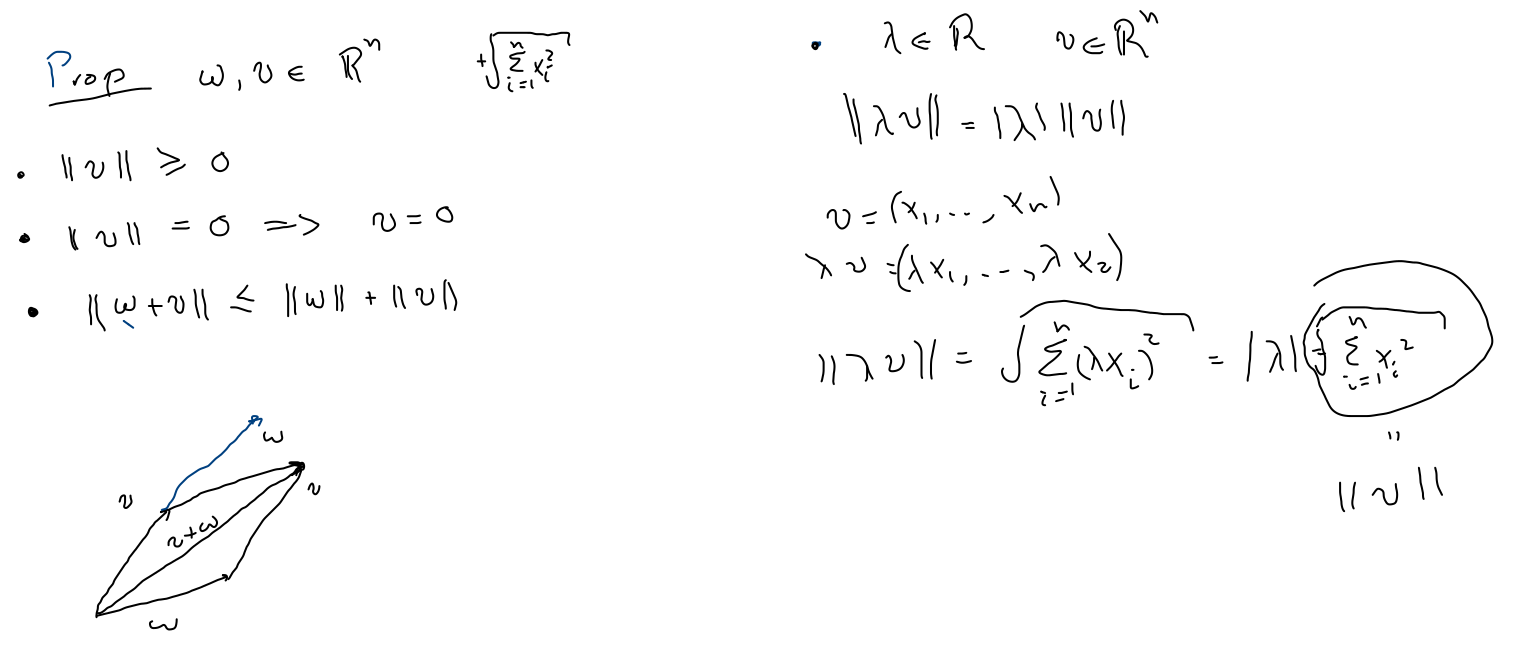 Prop   ω, v ∈ ℝⁿ   +√(∑_{i=1}^{n} x_i²)
• ||v|| ⩾ 0
• ||v|| = 0 => v = 0
• ||ω + v|| ≤ ||ω|| + ||v||
ω
v
v
v+ω
ω
• λ ∈ ℝ   v ∈ ℝⁿ
||λv|| = |λ| ||v||
v = (x₁, ..., xₙ)
λv = (λx₁, ..., λx₂)
||λv|| = √(∑_{i=1}^{n} (λx_i)²) = |λ| √(∑_{i=1}^{n} x_i²)
"
||v||